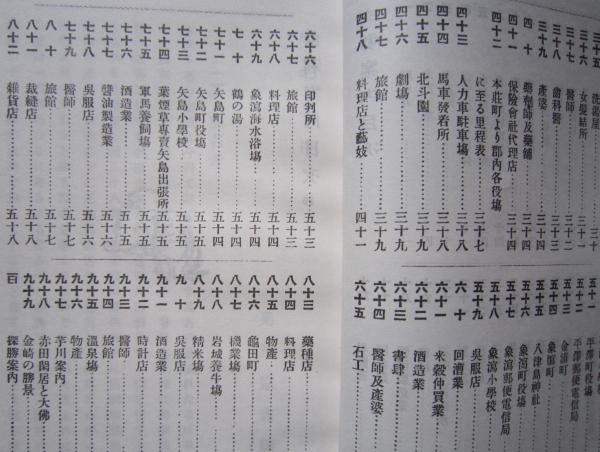 三十五 洗湯屋
三十六 女髮結所……三十一
三十七 醫師……三十二
三十八 齒科醫……三十三
三十九 產婆……三十四
四十 藥劑師及藥舖……三十四
四十一 保險會社代理店……三十四
四十二 本莊町より郡內各役塲
に至る里程表……三十七
四十三 人力車駐車塲……三十八
四十四 馬車發着所……三十八
四十五 北斗園……三十九
四十六 劇塲……三十九
四十七 旅館……三十九
四十八 料理店と藝妓……四十一
五十一 平澤町役塲
五十二 平澤郵便電信局
五十三 金浦町
五十四 象潟町
五十五 八津島神社
五十六 象潟町役塲
五十七 象潟郵便電信局
五十八 象潟小學校
五十九 吳服店
六十 回漕業
六十一 米穀仲買業
六十二 酒造業
六十三 書肆
六十四 醫師及產婆
六十五 石工
六十六 印判所……五十三
六十七 旅館……五十三
六十八 料理店……五十四
六十九 象潟海水浴塲……五十四
七十 鶴の湯……五十四
七十一 矢島町……五十四
七十二 矢島町役塲……五十五
七十三 矢島小學校……五十五
七十四 葉煙草專賣矢島出張所……五十五
七十五 軍馬養飼塲……五十五
七十六 酒造業……五十五
七十七 醬油製造業……五十六
七十八 吳服店……五十六
七十九 醫師……五十七
八十 旅館……五十七
八十一 裁縫店……五十八
八十二 雜貨店……五十八
八十三 藥種店
八十四 料理店
八十五 物產
八十六 龜田町
八十七 機業塲
八十八 岩城養牛塲
八十九 精米塲
九十 吳服店
九十一 酒造業
九十二 時計店
九十三 醫師
九十四 旅館
九十五 溫泉塲
九十六 物產
九十七 芋川案內
九十八 赤田閑居と大佛
九十九 金崎の勝景
百 探勝案內